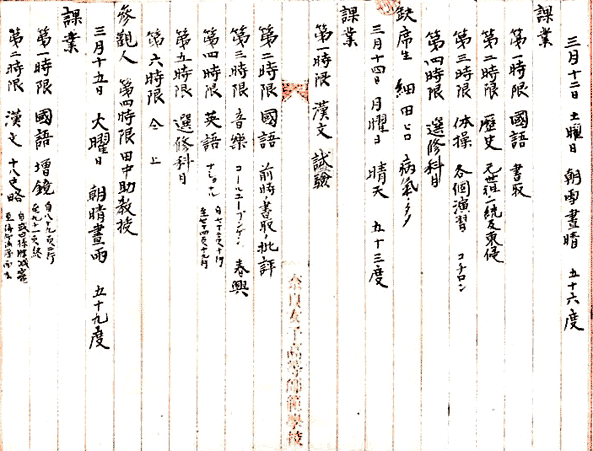 三月十二日 土曜日 朝雨晝晴 五十六度
課業
第一時限 國語 書取
第二時限 歷史 元世祖一統及東侵
第三時限 体操 各個演習 コチロン
第四時限 選修科目
欠席生 細田ヒロ 病氣ノタメ
三月十四日 月曜日 晴天 五十三度
課業
第一時限 漢文 試驗
奈良女子高等師範學校
第二時限 國語 前時ノ書取ノ批評
第三時限 音樂 コールユーブンゲン 春興
第四時限 英語
第五時限 選修科目
第六時限 仝上
參觀人 第四時限田中助教授
三月十五日 火曜日 朝晴晝雨 五十九度
課業
第一時限 國語 增鏡
第二時限 漢文 十八史略